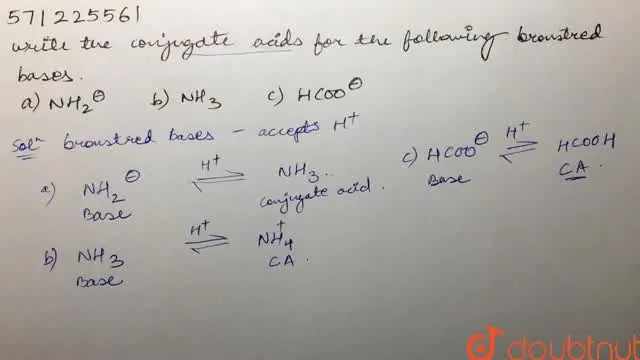 571225561
write the conjugate acids for the following bronstred
bases.
a) NH2⊖ b) NH3 c) HCOO⊖
Solⁿ bronstred bases – accepts H⁺
a) NH2⊖ ⇌ H⁺ NH3..
Base conjugate acid.
c) HCOO⊖ ⇌ H⁺ HCOOH
Base CA.
b) NH3 ⇌ H⁺ NH4⁺
Base CA.
doubtnut